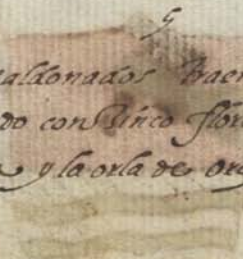 y
aldonados traen
do con Cinco flor
y la orla de or